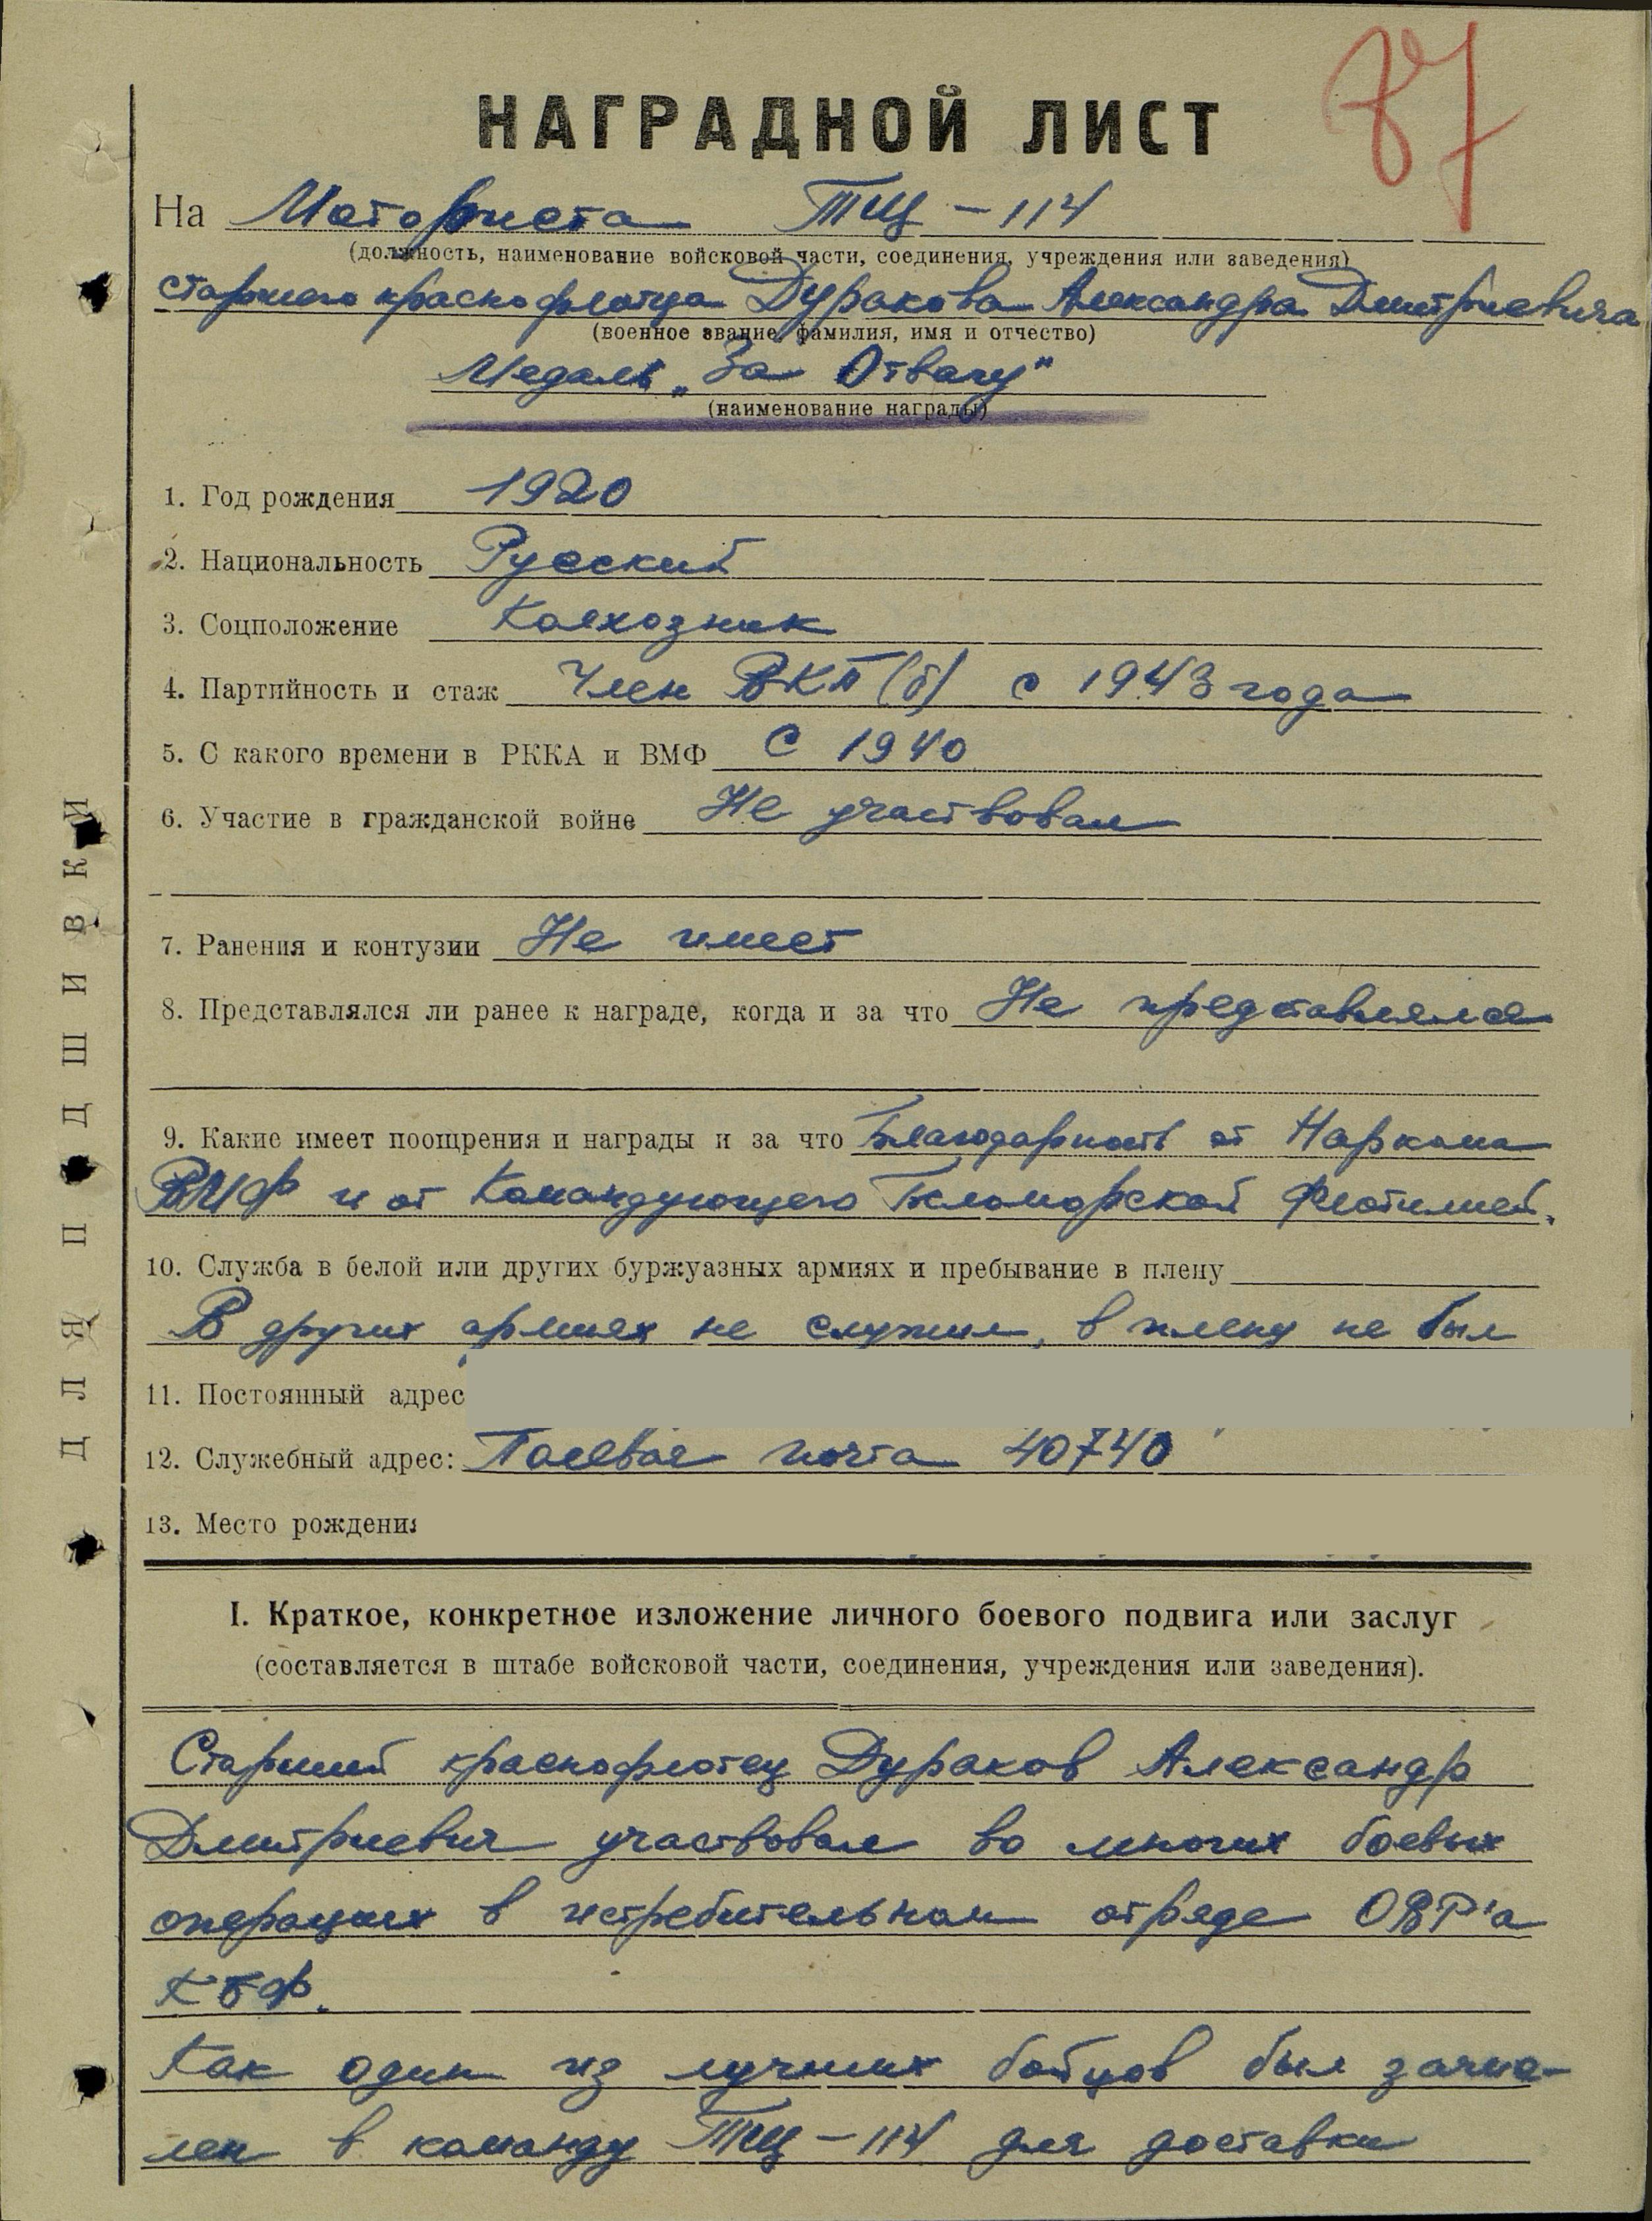 87
НАГРАДНОЙ ЛИСТ
На Моториста ТЩ-114
(должность, наименование войсковой части, соединения, учреждения или заведения)
старшего краснофлотца Дуракова Александра Дмитриевича
(военное звание, фамилия, имя и отчество)
Медаль „За Отвагу"
(наименование награды)
1. Год рождения 1920
2. Национальность Русский
3. Соцположение Колхозник
4. Партийность и стаж Член ВКП(б) с 1943 года
5. С какого времени в РККА и ВМФ С 1940
6. Участие в гражданской войне Не участвовал
7. Ранения и контузии Не имеет
8. Представлялся ли ранее к награде, когда и за что Не представлялся
9. Какие имеет поощрения и награды и за что Благодарность от Наркома
ВМФ и от Командующего Беломорской Флотилией.
10. Служба в белой или других буржуазных армиях и пребывание в плену
В других армиях не служил, в плену не был
11. Постоянный адрес
12. Служебный адрес: Полевая почта 40740
13. Место рождения
I. Краткое, конкретное изложение личного боевого подвига или заслуг
(составляется в штабе войсковой части, соединения, учреждения или заведения).
Старший краснофлотец Дураков Александр
Дмитриевич участвовал во многих боевых
операциях в истребительном отряде ОВР'а
КБФ.
Как один из лучших бойцов был зачис-
лен в команду ТЩ-114 для доставки
ДЛЯ ПОДШИВКИ